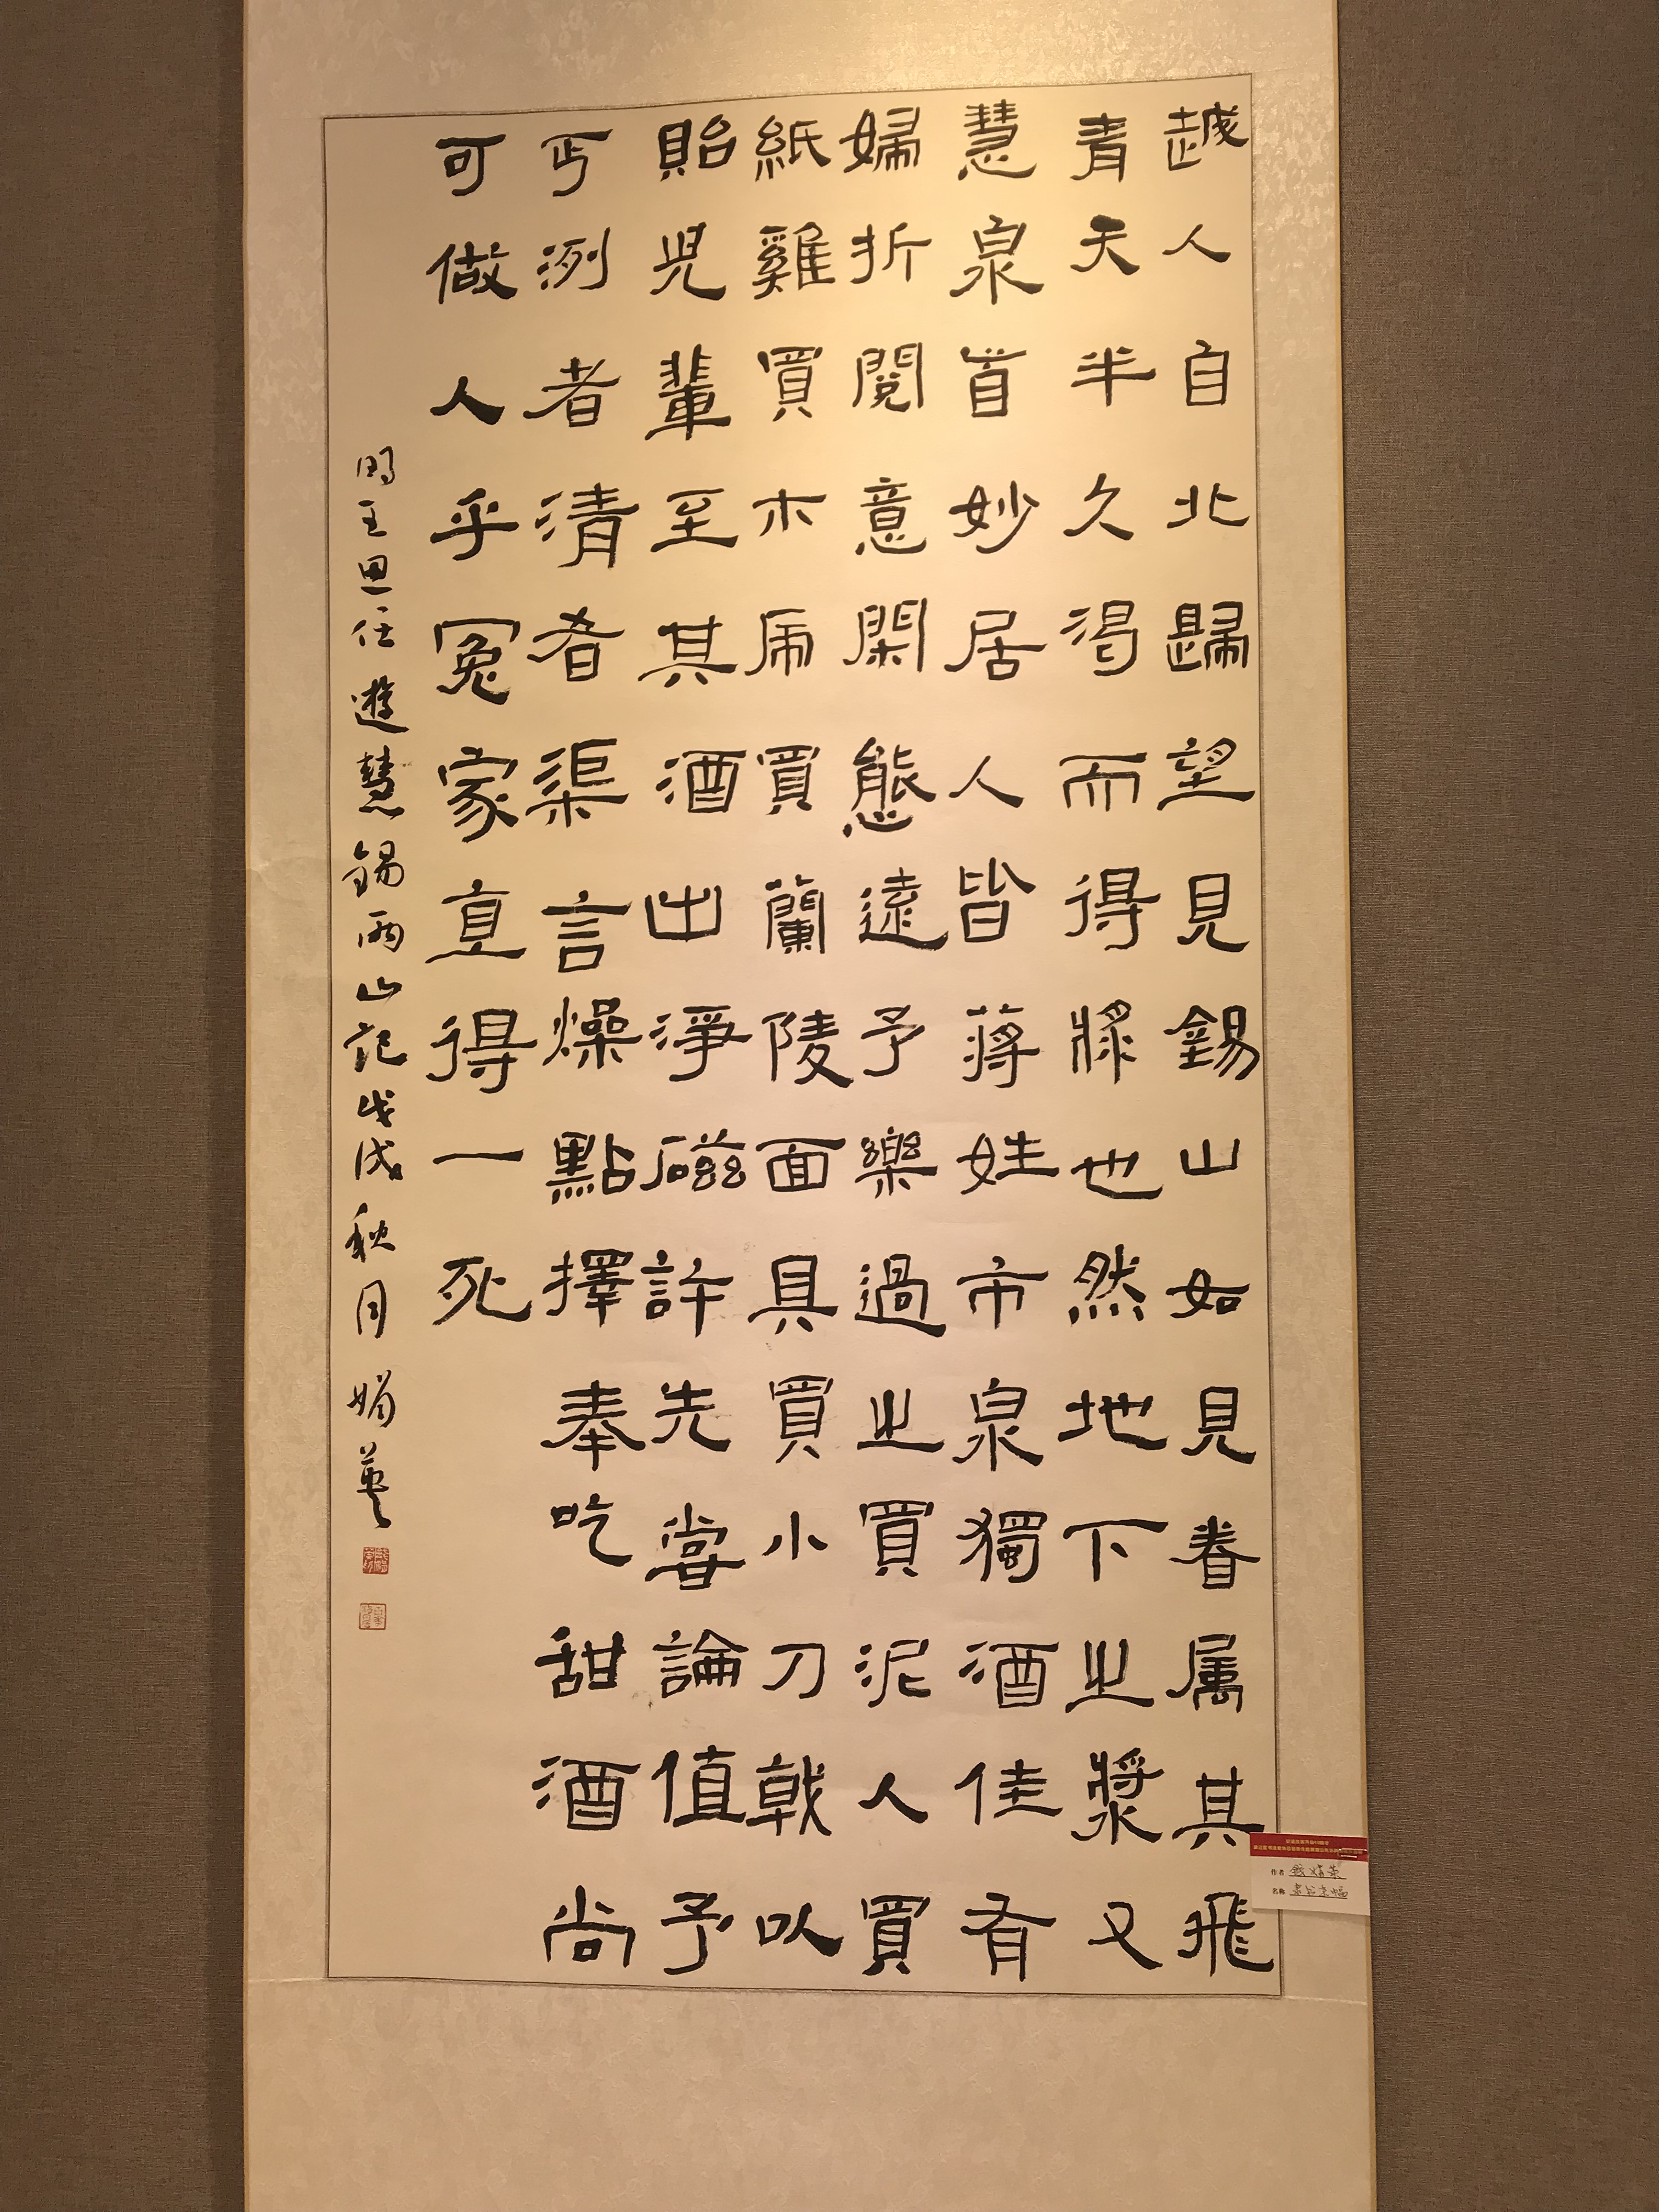 越人自北歸望見錫山如見眷属其飛
青天半久渴而得漿也然地下之漿又
慧泉首妙居人皆蔣姓市泉獨酒佳有
婦折閱意閑態遠予樂過之買泥人買
紙雞買木虎買蘭陵面具買小刀戟以
貽兒輩至其酒出淨磁許先嘗論值予
丐洌者清者渠言燥點擇奉吃甜酒尚
可做人乎冤家直得一死
明王思任遊慧錫兩山記戊戌秋月娟英
作者
名称